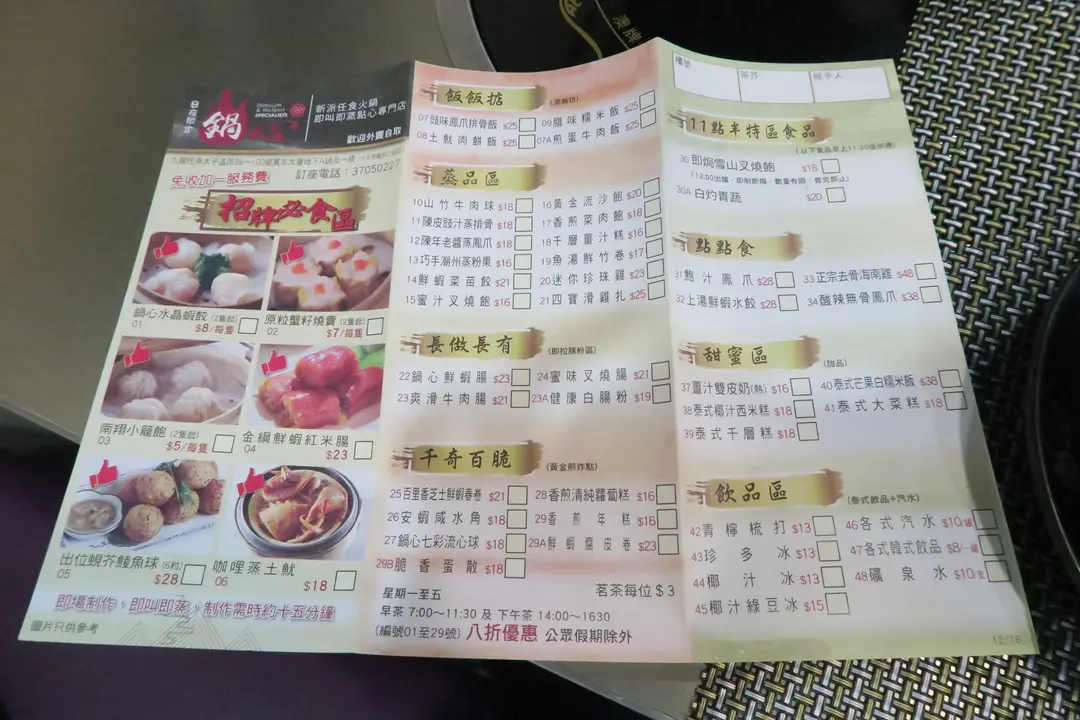 鍋
Dimsum & Hotpot
SPECIALISTS
新派任食火鍋
即叫即蒸點心專門店
歡迎外賣自取
訂座電話：37050227
免收加一服務費
招牌必食區
鍋心水晶蝦餃 (2隻起)
01 $8/每隻
原粒蟹籽燒賣 (2隻起)
02 $7/每隻
南翔小籠飽 (2隻起)
03 $5/每隻
金鋼鮮蝦紅米腸
04 $23
出位蜆芥鯪魚球 (6粒)
05 $28
咖哩蒸土魷
06 $18
即場制作，即叫即蒸，制作需時約十五分鐘
圖片只供參考
飯飯掂
07豉味鳳爪排骨飯 $25
09腊味糯米飯 $25
08土魷肉餅飯 $25
07A煎蛋牛肉飯 $25
蒸品區
10山竹牛肉球 $18
16黃金流沙飽 $20
11陳皮豉汁蒸排骨 $18
17香煎菜肉飽 $18
12陳年老醬蒸鳳爪 $18
18千層薑汁糕 $16
13巧手潮州蒸粉果 $16
19魚湯鮮竹卷 $17
14鮮蝦菜苗餃 $21
20迷你珍珠雞 $23
15蜜汁叉燒飽 $16
21四寶滑雞扎 $25
長做長有 (即拉腸粉區)
22鍋心鮮蝦腸 $23
24蜜味叉燒腸 $21
23爽滑牛肉腸 $21
23A健康白腸粉 $19
千奇百脆 (黃金煎炸點)
25百里香芝士鮮蝦春卷 $21
28香煎清純蘿蔔糕 $16
26安蝦咸水角 $18
29香煎年糕 $16
27鍋心七彩流心球 $18
29A鮮蝦腐皮卷 $23
29B脆香蛋散 $18
茗茶每位 $3
星期一至五
早茶 7:00～11:30 及 下午茶 14:00～1630
(編號01至29號) 八折優惠 公眾假期除外
檯號
茶芥
經手人
11點半特區食品
(以下食品早上11:30後供應)
30即焗雪山叉燒飽 $18
30A白灼青蔬 $20
點點食
31鮑汁鳳爪 $28
33正宗去骨海南雞 $48
32上湯鮮蝦水餃 $28
34酸辣無骨鳳爪 $38
甜蜜區 (甜品)
37薑汁雙皮奶(熱) $16
40泰式芒果白糯米飯 $38
38泰式椰汁西米糕 $18
41泰式大菜糕 $18
39泰式千層糕 $18
飲品區 (泰式飲品+汽水)
42青檸梳打 $13
46各式汽水 $10/罐
43珍多冰 $13
47各式韓式飲品 $8一罐
44椰汁冰 $13
48礦泉水 $10/支
45椰汁綠豆冰 $15
12/16